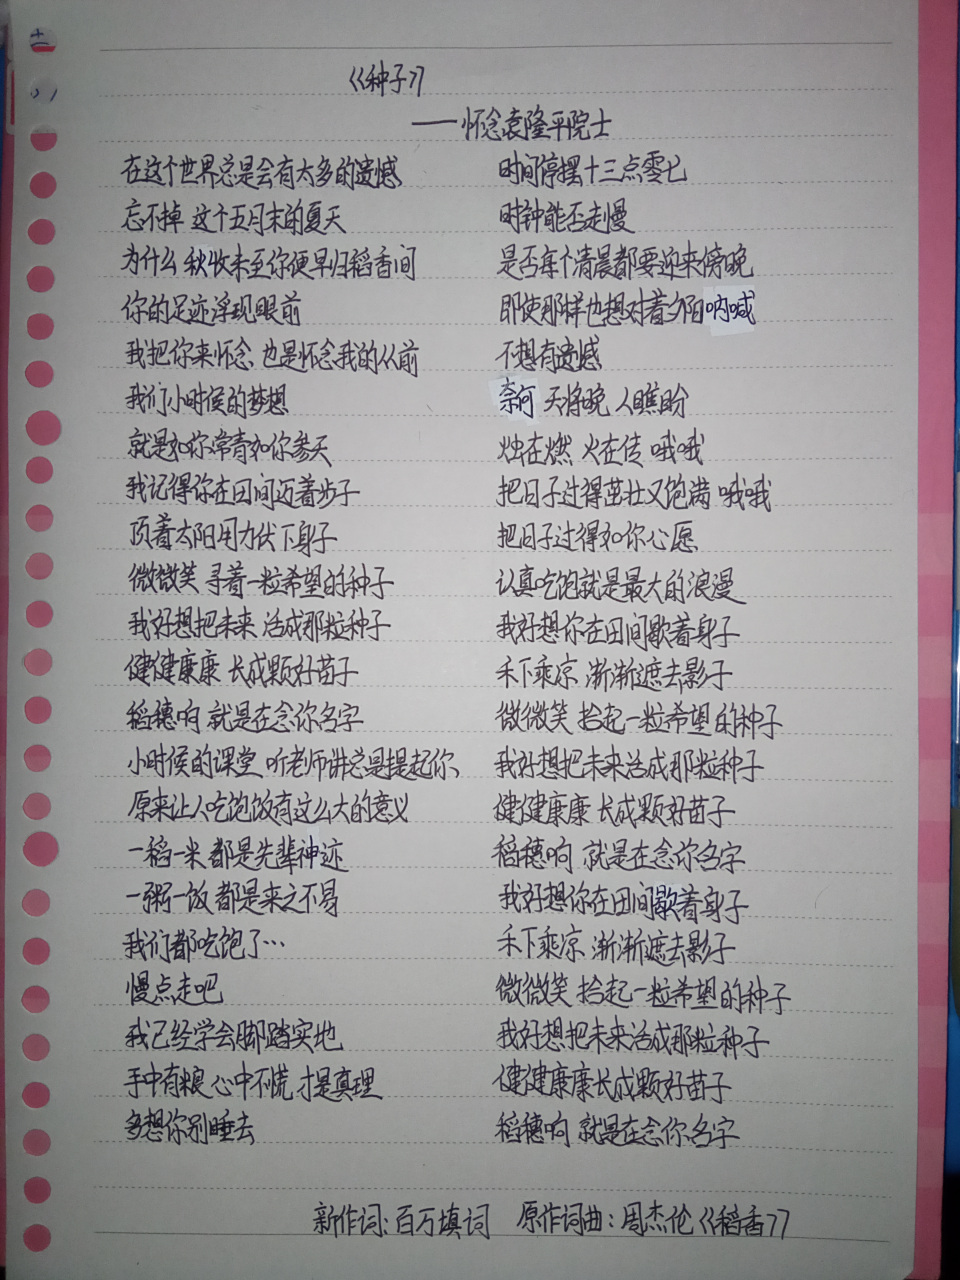 《种子》
——怀念袁隆平院士
在这个世界总是会有太多的遗憾
忘不掉 这个五月末的夏天
为什么 秋收未至你便早归稻香间
你的足迹浮现眼前
我把你来怀念 也是怀念我的从前
我们小时候的梦想
就是如你常青如你参天
我记得你在田间迈着步子
顶着太阳用力伏下身子
微微笑 寻着一粒希望的种子
我好想把未来 活成那粒种子
健健康康 长成颗好苗子
稻穗响 就是在念你名字
小时候的课堂 听老师讲总是提起你、
原来让人吃饱饭有这么大的意义
一稻一米 都是先辈神迹
一粥一饭 都是来之不易
我们都吃饱了…
慢点走吧
我已经学会脚踏实地
手中有粮 心中不慌 才是真理
多想你别睡去
时间停摆十三点零七
时钟能否走慢
是否每个清晨都要迎来傍晚
即使那样也想对着夕阳呐喊
不想有遗憾
奈何 天将晚 人瞧盼
烛在燃 火在传 哦哦
把日子过得茁壮又饱满 哦哦
把日子过得如你心愿
认真吃饱就是最大的浪漫
我好想你在田间歇着身子
禾下乘凉 渐渐遮去影子
微微笑 拾起一粒希望的种子
我好想把未来活成那粒种子
健健康康 长成颗好苗子
稻穗响 就是在念你名字
我好想你在田间歇着身子
禾下乘凉 渐渐遮去影子
微微笑 拾起一粒希望的种子
我好想把未来活成那粒种子
健健康康长成颗好苗子
稻穗响 就是在念你名字
新作词:百万填词 原作词曲:周杰伦《稻香》